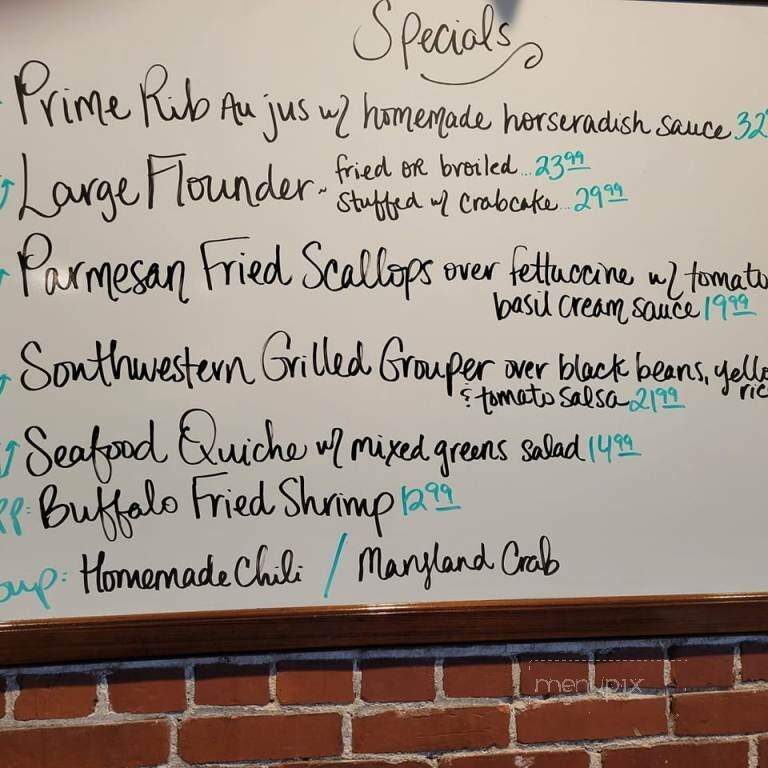 Specials
Prime Rib Au jus w/ homemade horseradish sauce 32
Large Flounder ~ fried OR broiled... 23.99
Stuffed w/ crabcake... 29.99
Parmesan Fried Scallops over fettuccine w/ tomato
basil cream sauce 19.99
Southwestern Grilled Grouper over black beans, yello
ric
& tomato salsa 21.99
Seafood Quiche w/ mixed greens salad 14.99
pp: Buffalo Fried Shrimp 12.99
oup: Homemade Chili / Maryland Crab
menupix